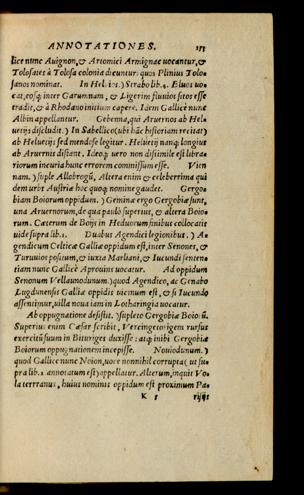 ANNOTATIONES. 153
lice nunc Auignon, & Artomici Armignac uocantur, &
Tolosates à Tolosa colonia dicuntur: quos Plinius Tolo-
sanos nominat. In Hel. 105.) Strabo lib. 4. Eluos uo-
cat, eosq; inter Garumnam, & Ligerim fluuios sitos esse
tradit, & à Rhodano initium capere. Idem Gallicè nunc
Albin appellantur. Gebenna, qui Aruernos ab Hel-
uetijs discludit.) In Sabellico (ubi hāc historiam recitat)
ab Heluetijs sed mendosè legitur. Heluetij nanq; longius
ab Aruernis distant. Ideoq; uero non dissimile est libra-
riorum incuria hunc errorem commissum esse. Vien
nam.) suple Allobrogū, Altera enim & celeberrima qui
dem urbs Austriæ hoc quoq; nomine gaudet. Gergo-
biam Boiorum oppidum.) Geminæ ergo Gergobiæ sunt,
una Aruernorum, de qua paulò superius, & altera Boio-
rum. Cæterum de Boijs in Heduorum finibus collocatis
uide supra lib. 1. Duabus Agendici legionibus.) A-
gendicum Celticæ Galliæ oppidum est, inter Senones, &
Turuuios positum, & iuxta Marliani, & Iucundi senten-
tiam nunc Gallicè Aprouins uocatur. Ad oppidum
Senonum Vellaunodunum.) quod Agendico, ac Genabo
Lugdunensis Galliæ oppidis uicinum est, & si Iucundo
assentimur, uilla noua iam in Lotharingia uocatur.
Ab oppugnatione destitit.) supleto Gergobiæ Boio ū.
Superius enim Cæsar scribit, Vercingetorigem rursus
exercitū suum in Bituriges duxisse: atq; inibi Gergobiæ
Boiorum oppugnationem incepisse. Nouiodunum.)
quod Gallicè nunc Noion, uoce nonnihil corrupta (ut su-
pra lib. 2 annotatum est) appellatur. Alterum, inquit Vo-
laterranus, huius nominis oppidum est proximum Pa-
K 5 rijs